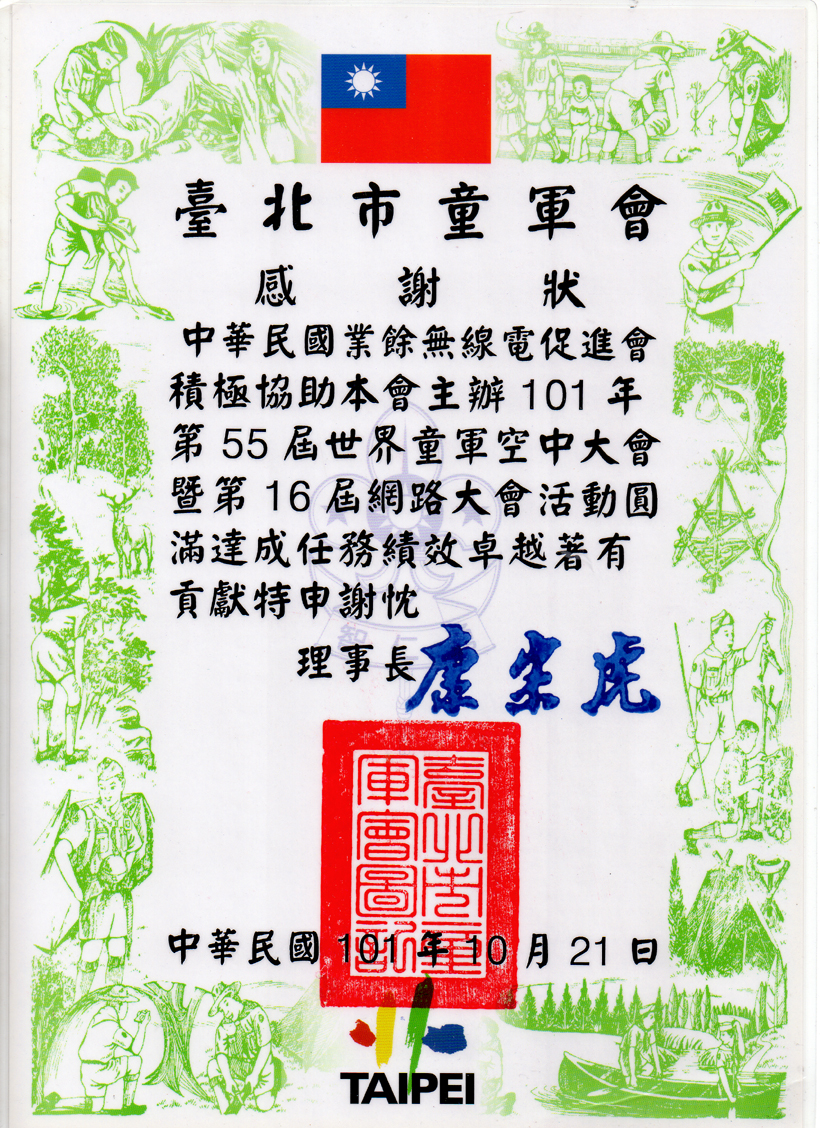 臺北市童軍會
感謝狀
中華民國業餘無線電促進會
積極協助本會主辦101年
第55屆世界童軍空中大會
暨第16屆網路大會活動圓
滿達成任務績效卓越著有
貢獻特申謝忱
理事長康宗虎
臺北市童軍會圖記
中華民國101年10月21日
TAIPEI